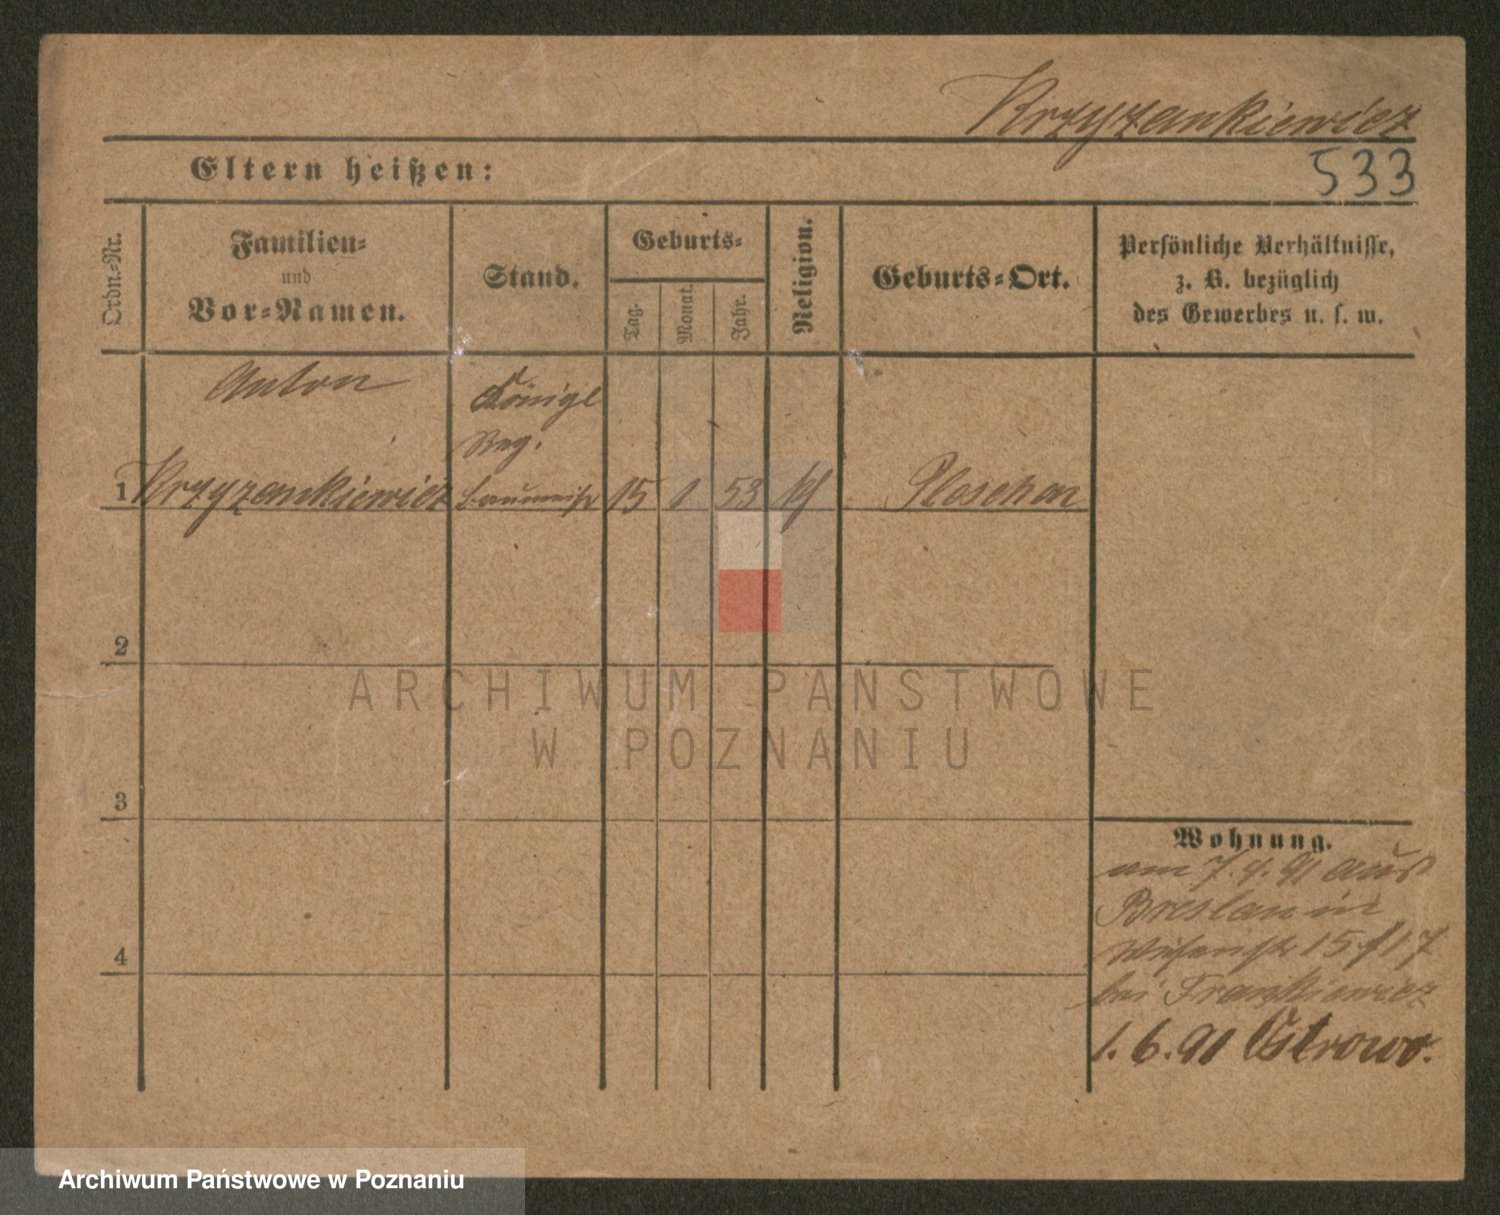 Krzyzankiewicz
Eltern heißen:
533
Ordn.=Nr.
Familien=
und
Vor=Namen.
Stand.
Geburts=
Tag.
Monat.
Jahr.
Religion.
Geburts=Ort.
Persönliche Verhältnisse,
z. B. bezüglich
des Gewerbes u. s. w.
Anton
Königl
Reg.
1 Krzyzankiewicz baumeistr 15 1 53 kt Pleschen
2
ARCHIWUM PAŃSTWOWE
W POZNANIU
3
Wohnung.
am 7. 4. 91 aus
Breslau in
Wiesenstr 15 / 17
bei Frankiewicz
4
1. 6. 91 Ostrowo.
Archiwum Państwowe w Poznaniu